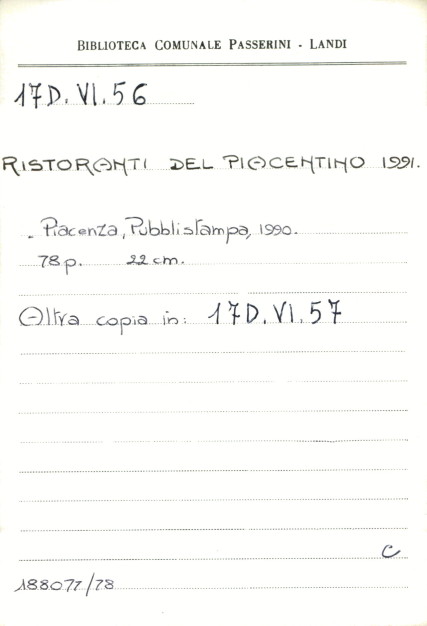 BIBLIOTECA COMUNALE PASSERINI - LANDI
17D.VI.56
RISTORANTI DEL PIACENTINO 1991.
. Piacenza, Pubblistampa, 1990.
78 p. 22 cm.
Altra copia in: 17D.VI.57
C
188077/78